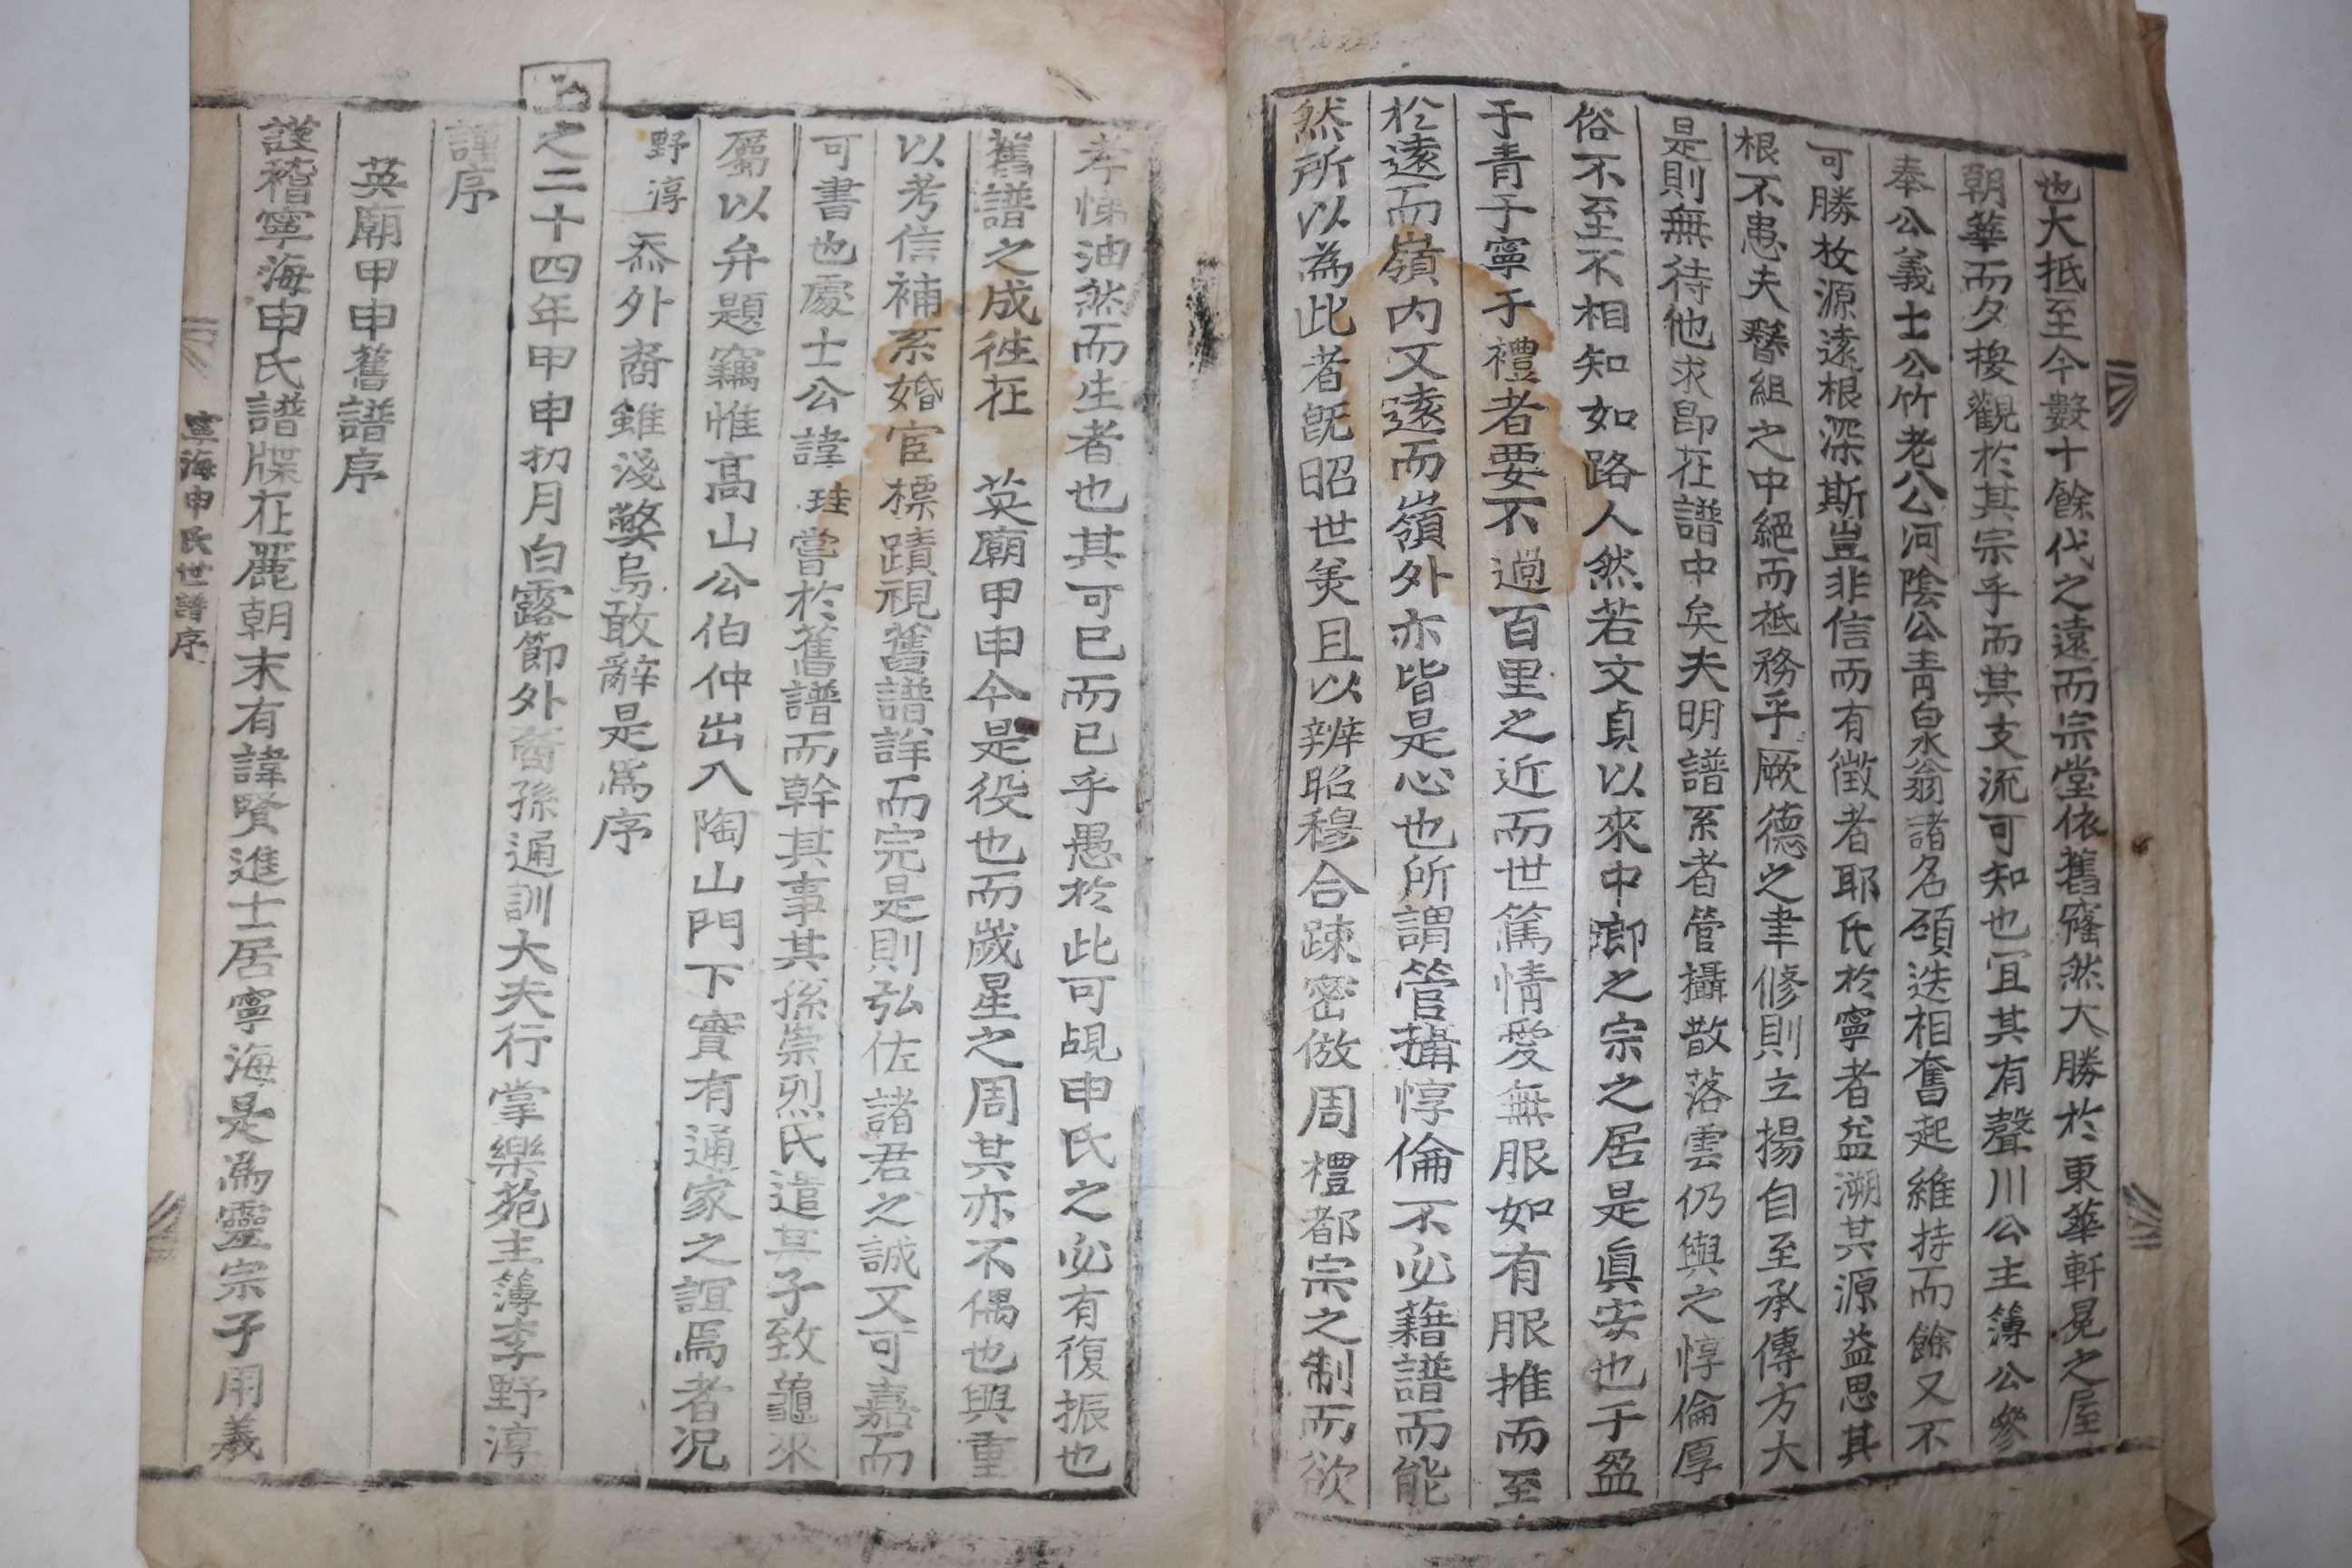 也大抵至今數十餘代之遠而宗堂依舊窿然大勝於東華軒冕之屋
朝華而夕椄觀於其宗乎而其支流可知也宜其有聲川公主簿公參
奉公義士公竹老公河陰公靑泉翁諸名碩迭相奮起維持而餘又不
可勝枚源遠根深斯豈非信而有徵者耶氏於寧者盆溯其源益思其
根不患夫簪組之中絕而祗務乎厥德之聿修則立揚自至承傳方大
是則無待他求卽在譜中矣夫明譜系者管攝散落雲仍與之惇倫厚
俗不至不相知如路人然若文貞以來中郞之宗之居是眞安也于盈
于青于寧于禮者要不過百里之近而世篤情愛無服如有服推而至
於遠而嶺內又遠而嶺外亦皆是心也所謂管攝惇倫不必藉譜而能
然所以為此者旣昭世羙且以辨昭穆合踈密倣周禮都宗之制而欲
孝悌油然而生者也其可已而已乎愚於此可覘申氏之必有復振也
舊譜之成徃在 英廟甲申今是役也而歲星之周其亦不偶也興重
以考信補系婚宦標蹟視舊譜詳而完是則弘佐諸君之誠又可嘉而
可書也處士公諱珪嘗於舊譜而幹其事其孫崇烈氏遣其子致龜來
屬以弁題竊惟高山公伯仲出入陶山門下實有通家之誼焉者况
野淳忝外裔雖淺弊烏敢辭是爲序
上之二十四年甲申初月白露節外裔孫通訓大夫行掌樂苑主簿李野淳
謹序
英廟甲申舊譜序
謹稽寧海申氏譜牒在麗朝末有諱賢進士居寧海是爲靈宗子用羲
寧海申氏世譜序